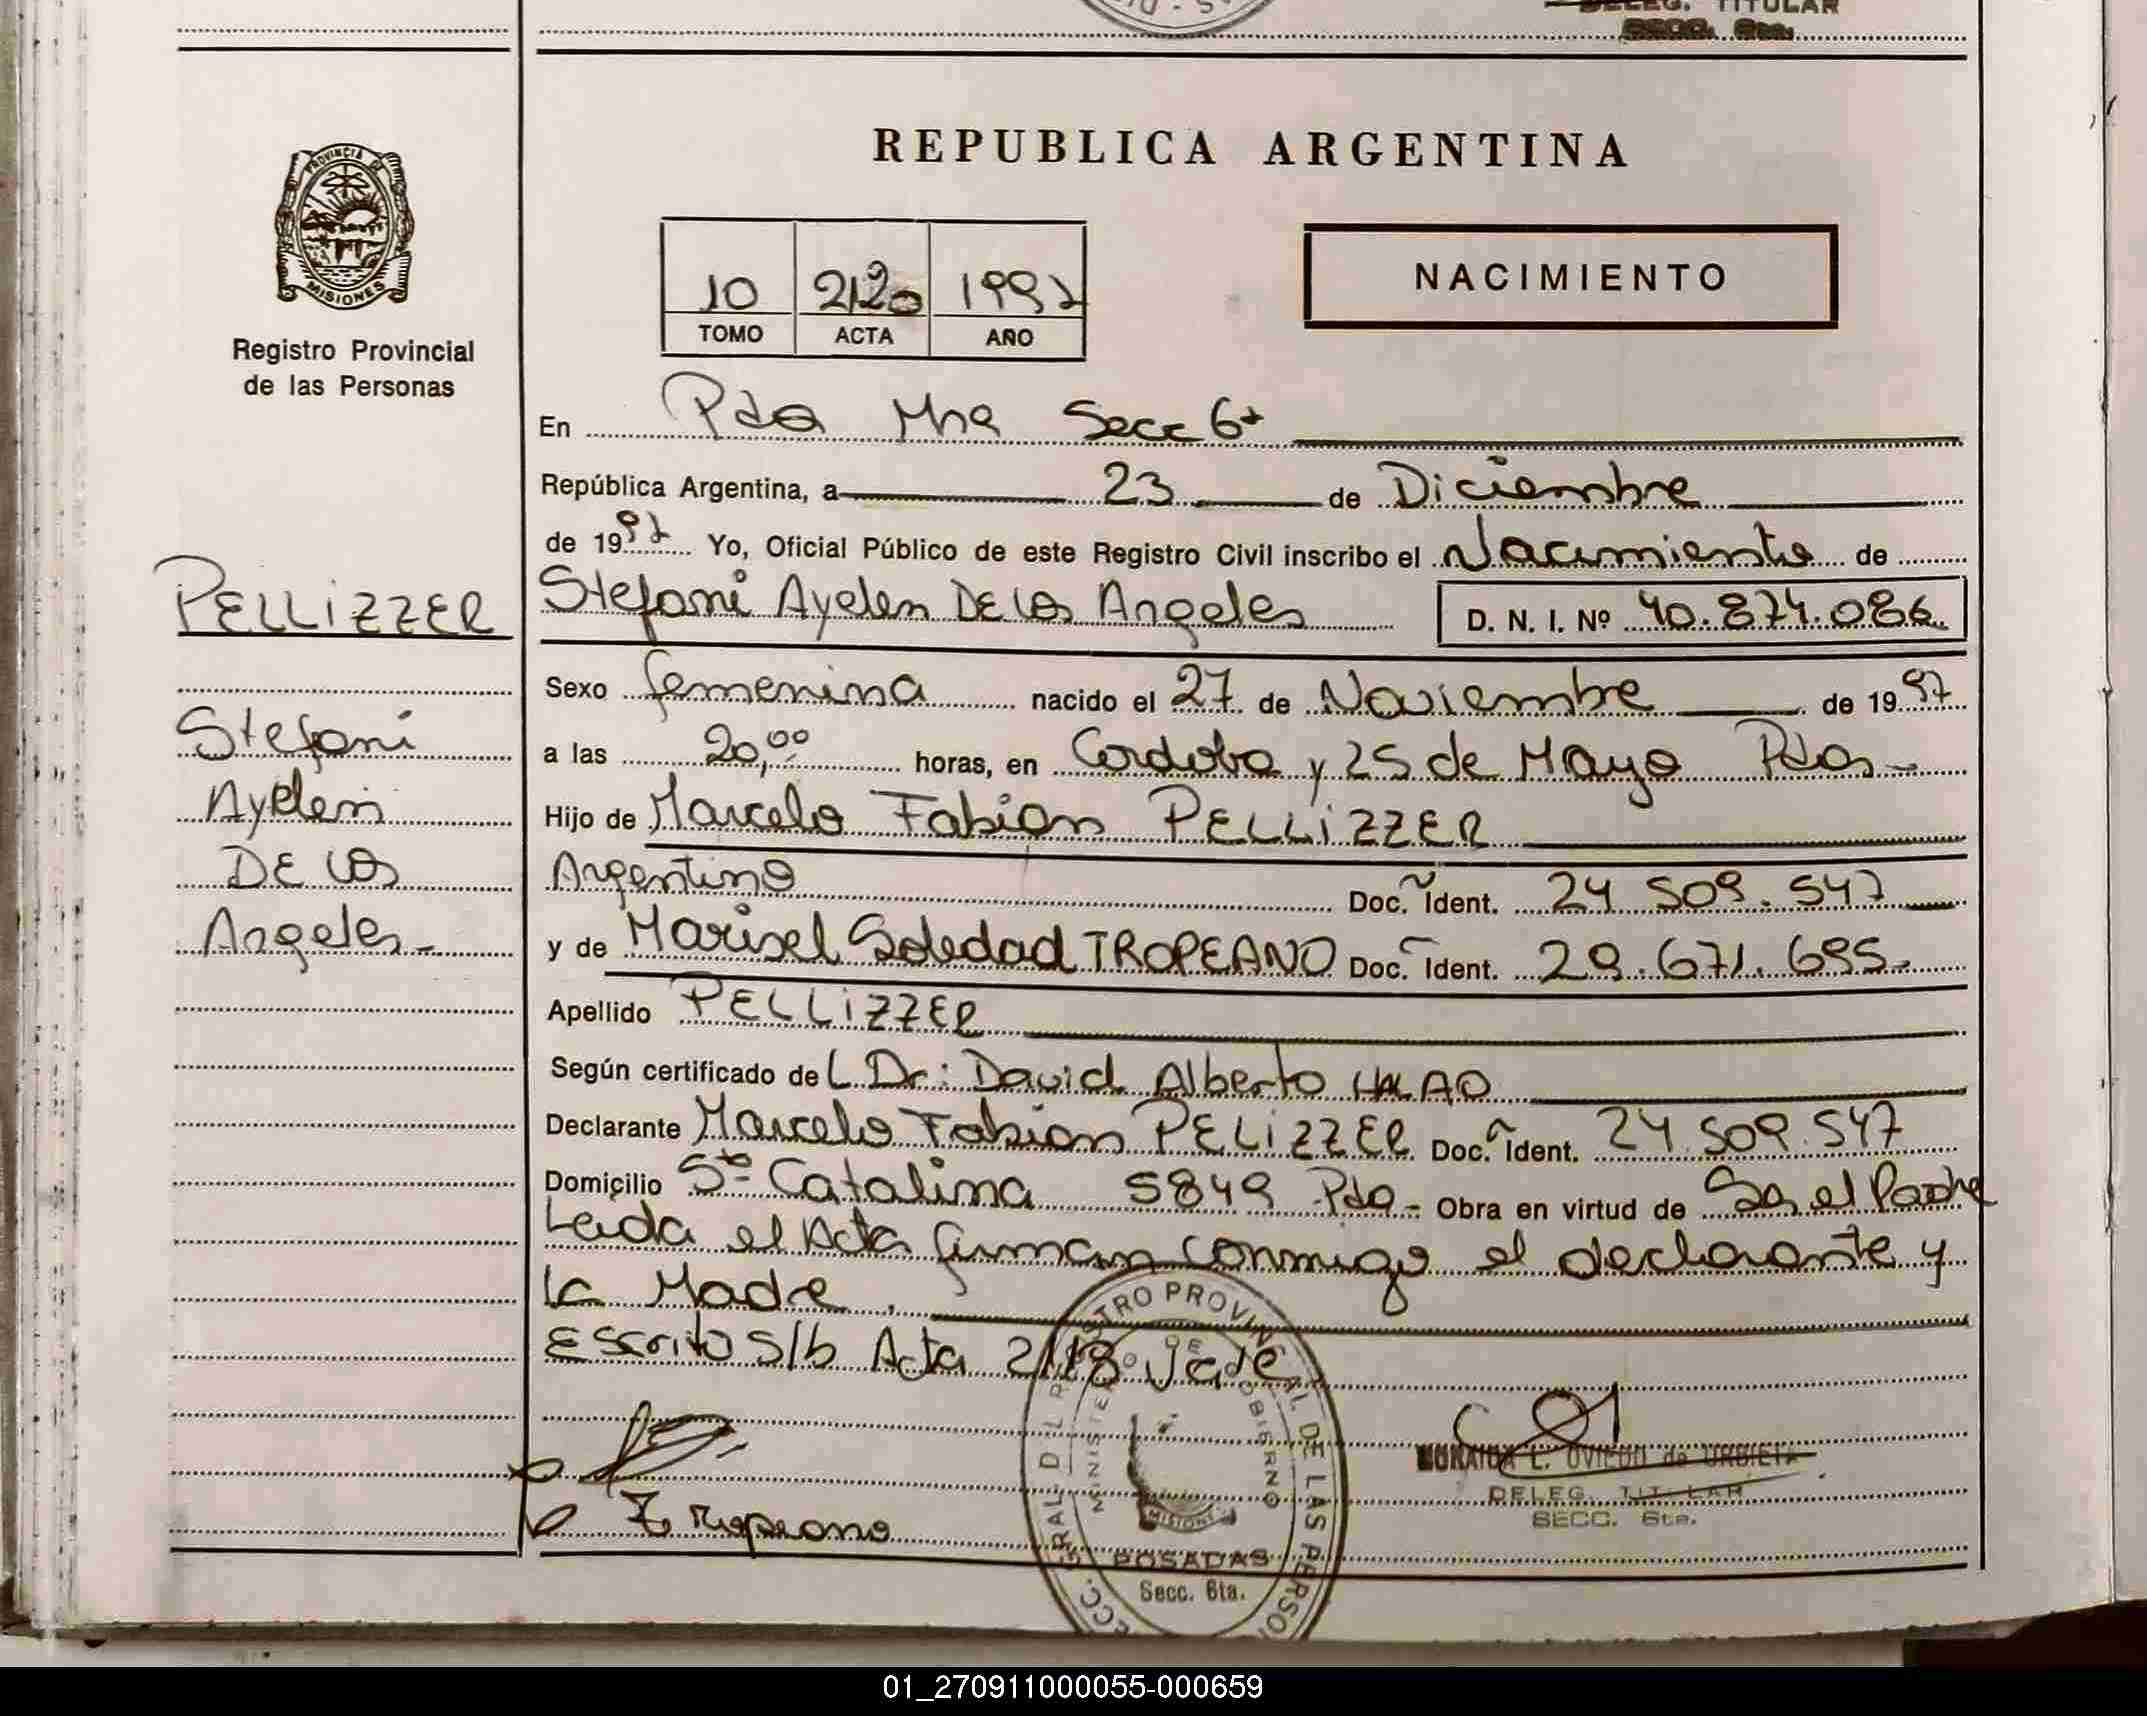 DELEG. TITULAR
SECC. 6ta.
PROVINCIA DE
MISIONES
Registro Provincial
de las Personas
REPUBLICA ARGENTINA
10 2120 1997
TOMO ACTA AÑO
NACIMIENTO
En Pdas Mnes Secc 6ta
República Argentina, a 23 de Diciembre
de 1997 Yo, Oficial Público de este Registro Civil inscribo el Nacimiento de
PELLIZZER
Stefani
Ayelen
DE LOS
Angeles
Stefani Ayelen DE LOS Angeles D. N. I. Nº 40.874.086
Sexo femenina nacido el 27 de Noviembre de 1997
a las 20,00 horas, en Cordoba y 25 de Mayo Pdas
Hijo de Marcelo Fabian PELLIZZER
Argentino Doc. Ident. 24 509.547
y de Marisel Soledad TROPEANO Doc. Ident. 29.671.695.
Apellido PELLIZZER
Según certificado de L Dr: David Alberto
Declarante Marcelo Fabian PELIZZER Doc. Ident. 24 509.547
Domicilio Sta Catalina 5849 Pdas - Obra en virtud de Ser el Padre
Leida el Acta firman conmigo el declarante y
la Madre.
Escrito s/b Acta 2118 Vale
Tropeano
REGISTRO PROVINCIAL DE LAS PERSONAS
MINISTERIO DE GOBIERNO
MISIONES
POSADAS
Secc. 6ta.
L. OVIEDO de URBIETA
DELEG. TITULAR
SECC. 6ta.
01_270911000055-000659